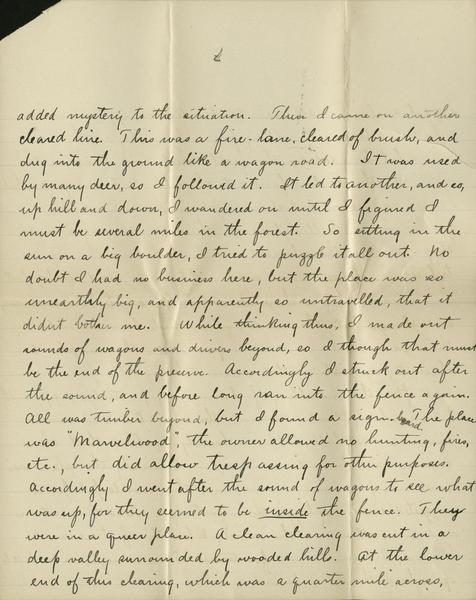 added mystery to the situation. Then I came on another
cleared line. This was a fire-lane, cleared of brush, and
dug into the ground like a wagon road. It was used
by many deer, so I followed it. It led to another, and so,
up hill and down, I wandered on until I figured I
must be several miles in the forest. So sitting in the
sun on a big boulder, I tried to puzzle it all out. No
doubt I had no business here, but the place was so
unearthly big, and apparently so untravelled, that it
didnt bother me. While thinking thus, I made out
sounds of wagons and drivers beyond, so I though that must
be the end of the preserve. Accordingly I struck out after
the sound, and before long ran into the fence again.
All was timber beyond, but I found a sign-board. The place
was "Marvelwood"; the owner allowed no hunting, fires,
etc., but did allow trespassing for other purposes.
Accordingly I went after the sound of wagons to see what
was up, for they seemed to be inside the fence. They
were in a queer place. A clean clearing was cut in a
deep valley surrounded by wooded hills. At the lower
end of this clearing, which was a quarter mile across,